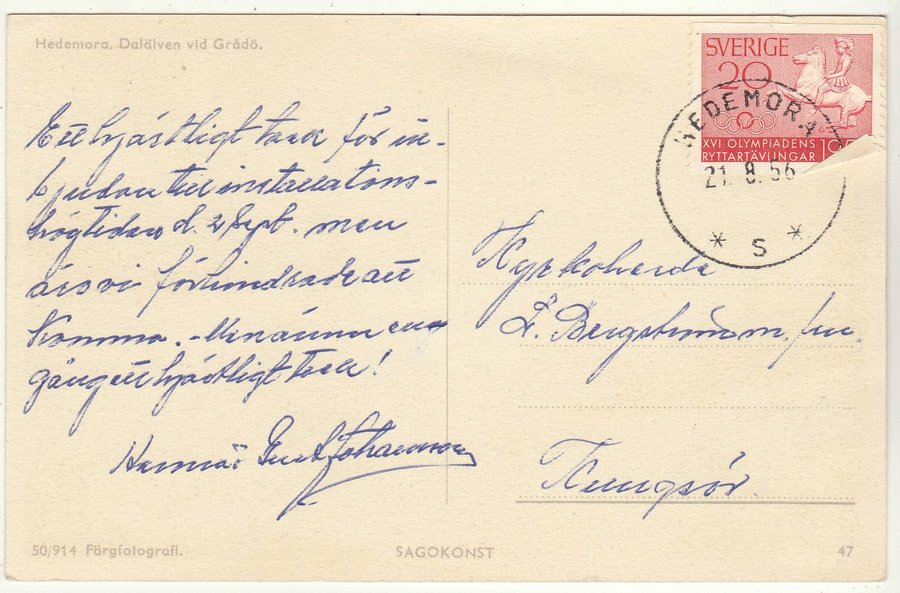 Hedemora. Dalälven vid Grådö.
SVERIGE
20
XVI OLYMPIADENS
RYTTARTÄVLINGAR 195
HEDEMORA
21. 8. 56
* S *
Ett hjärtligt tack för in-
bjudan till installations-
högtiden d. 2 Sept. men
äro vi förhindrade att
komma. - Men ännu en
gång ett hjärtligt tack!
Johansson
Kyrkoherde
E. Bergström m. fru
Kungsör.
50/914 Färgfotografi.
SAGOKONST
47